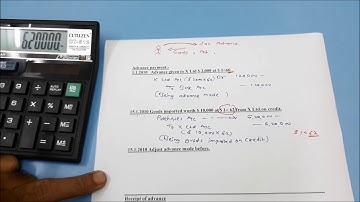 CITIZEN
620000
Give Advance
Goods, Ast.
Advance payment.
2.1.2010 Advance given to X Ltd $ 2,000 at $ 1=60.
X Ltd A/c ($2000×60) Dr 120000
To Bank A/c — 120000
(Being advance made)
15.1.2010 Goods imported worth $ 10,000 at $ 1= 62 from X Ltd on credit.
Purchases A/c — Dr 6,20,000
To X Ltd A/c — 6,20,000
($ 10,000 × 62)
(Being goods imported on credit)
$ 1 = 62
15.1.2010 Adjust advance made before.
Receipt of advance